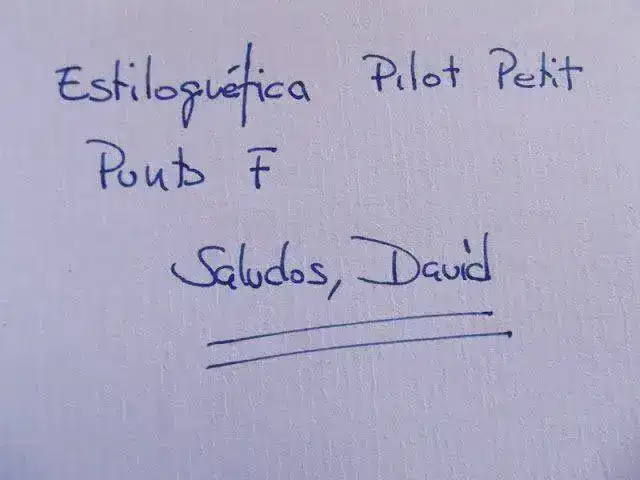 Estilográfica Pilot Petit
Punto F
Saludos, David